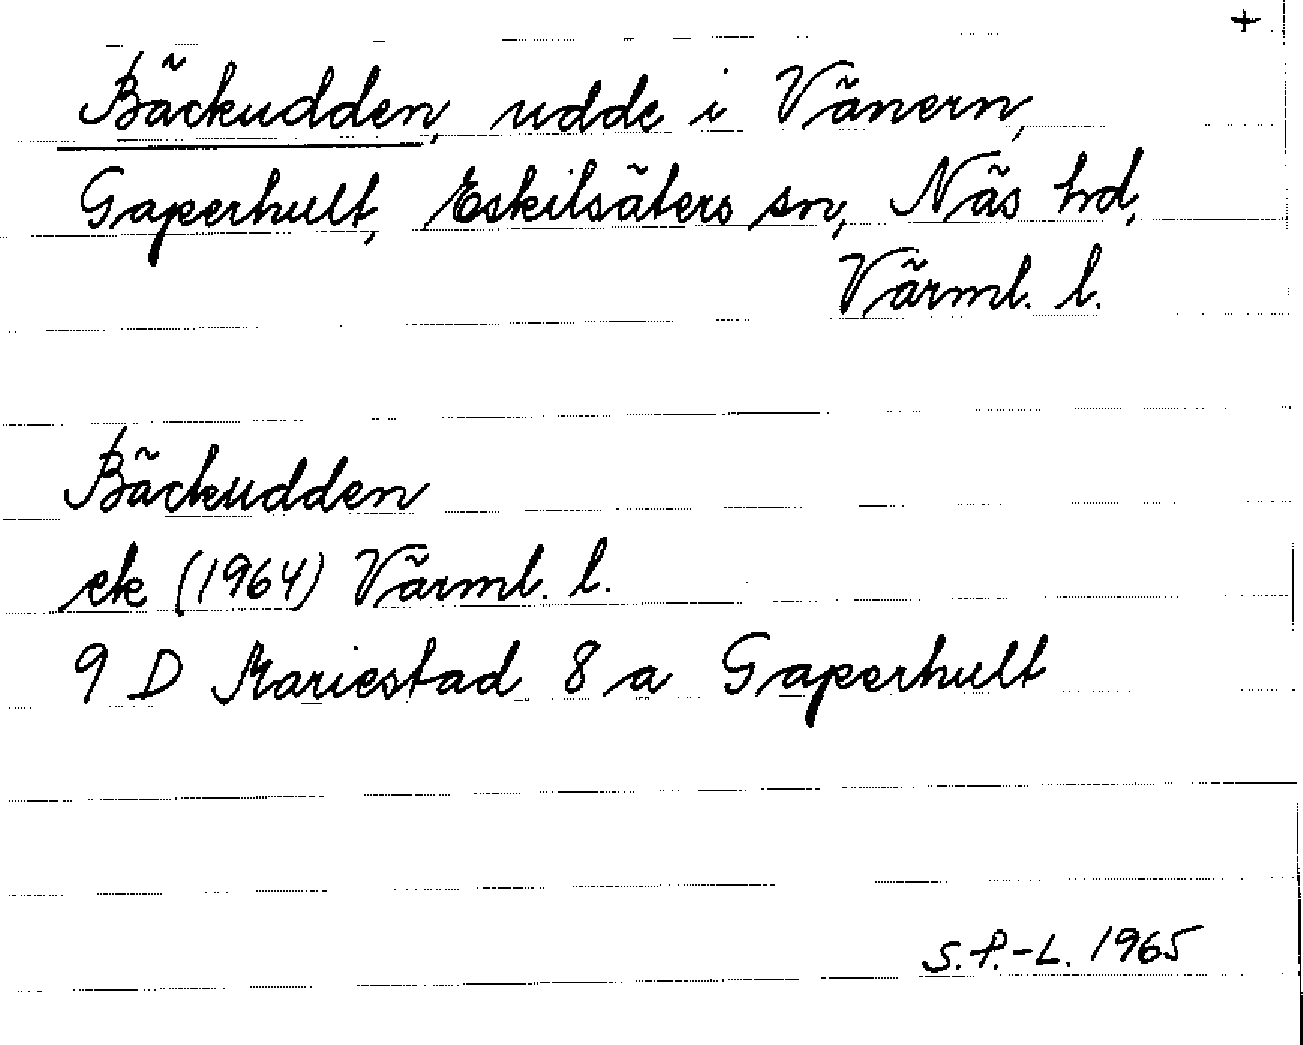 +
Bäckudden, udde i Vänern,
Gaperhult, Eskilsäters sn, Näs hd,
Värml. l.
Bäckudden
ek (1964) Värml. l.
9 D Mariestad 8 a Gaperhult
S.P.-L. 1965